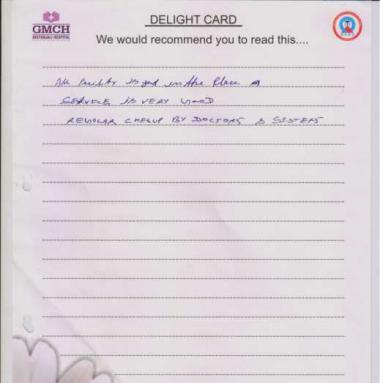 GMCH
GEETANJALI HOSPITAL
DELIGHT CARD
We would recommend you to read this....
All Facility is good in the Place
SERVICE IS VERY GOOD
REGULAR CHEKUP BY DOCTORS & SISTERS